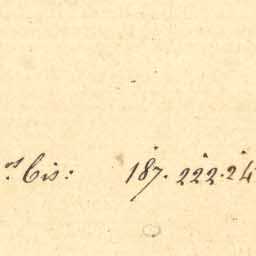 os Cis: 187. 222. 24